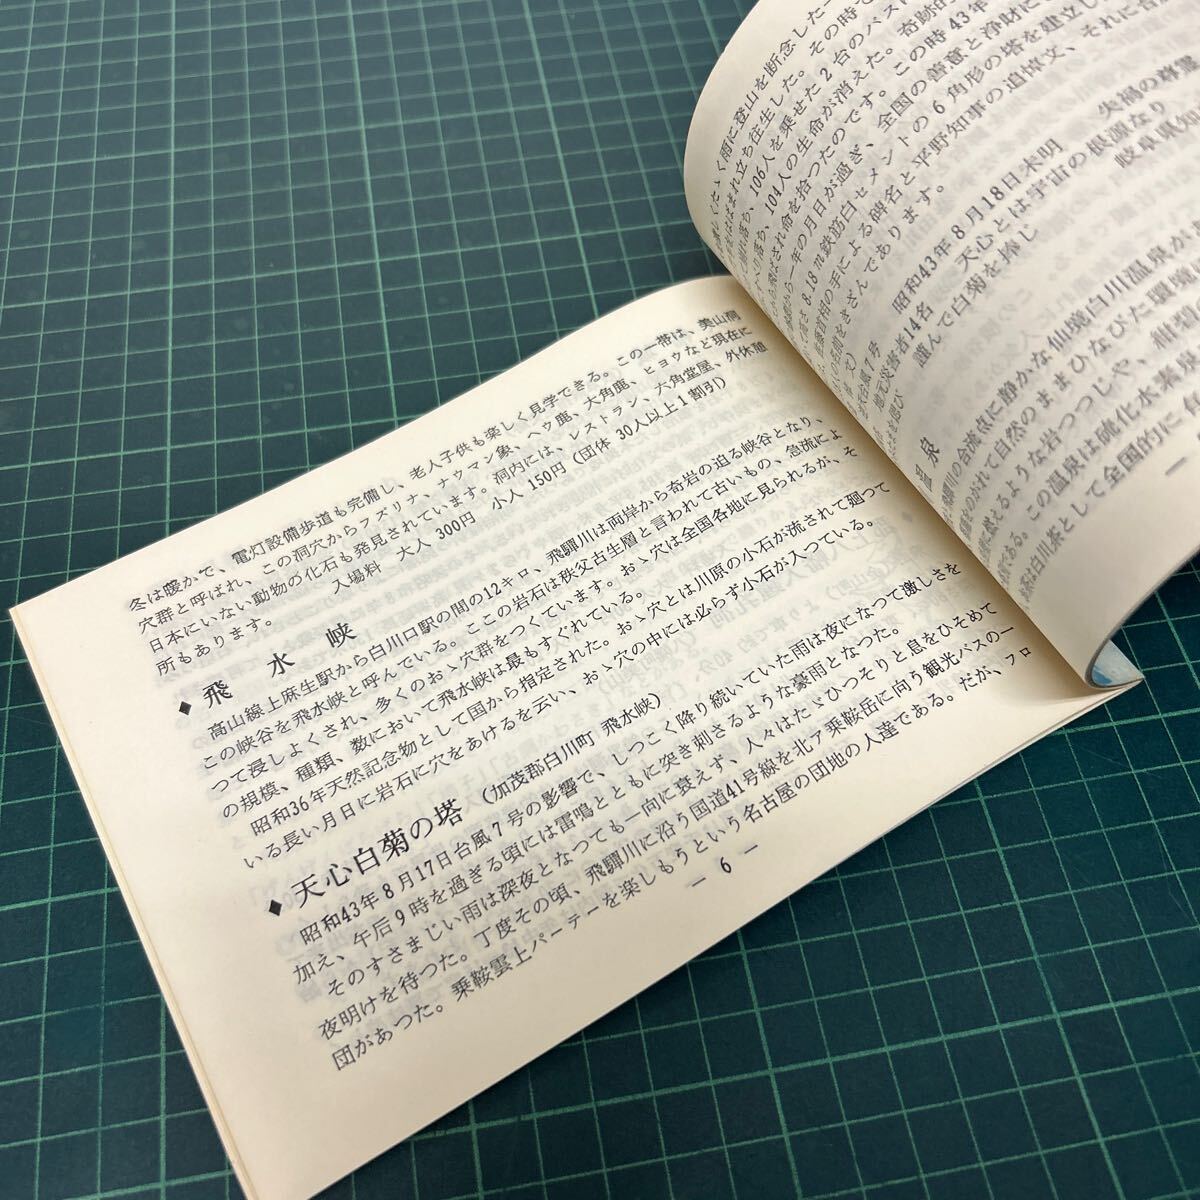 冬は暖かで、電灯設備歩道も完備し、老人子供も楽しく見学できる。この一帯は、美山洞
穴群と呼ばれ、この洞穴からフズリナ、ナウマン象、ヘウ鹿、大角鹿、ヒョウなど現在に
日本にいない動物の化石も発見されています。洞内には、レストラン、六角堂屋、外休憩
所もあります。　入場料　大人 300円　小人 150円（団体 30人以上1割引）
◆ 飛水峡
高山線上麻生駅から白川口駅の間の12キロ、飛驒川は両岸から奇岩の迫る峡谷となり、
この峡谷を飛水峡と呼んでいる。ここの岩石は秩父古生層と言われて古いもの、急流によ
つて浸しよくされ、多くのおゝ穴群をつくています。おゝ穴は全国各地に見られるが、そ
の規模、種類、数において飛水峡は最もすぐれている。
昭和36年天然記念物として国から指定された。おゝ穴とは川原の小石が流されて廻つて
いる長い月日に岩石に穴をあけるを云い、おゝ穴の中には必らず小石が入つている。
◆ 天心白菊の塔（加茂郡白川町 飛水峡）
昭和43年8月17日台風7号の影響で、しつこく降り続いていた雨は夜になつて激しさを
加え、午后9時を過ぎる頃には雷鳴とともに突き刺さるような豪雨となつた。
そのすさまじい雨は深夜となつても一向に衰えず、人々はたゞひつそりと息をひそめて
夜明けを待つた。丁度その頃、飛驒川に沿う国道41号線を北ア乗鞍岳に向う観光バスの一
団があつた。乗鞍雲上パーテーを楽しもうという名古屋の団地の人達である。だが、フロ
— 6 —
く雨に登山を断念した一
はばまれ立ち往生した。その時で
落ち、106人を乗せた2台のバスは
落ち、104人の生命が消えた。奇跡的
飛ばされ命を拾つたのです。この時43年
から一年の月日が過ぎ、全国の善意と浄財に
8.18m鉄筋白セメントの6角形の塔を建立し
首相の手による碑名と平野知事の追悼文、それに
をきざんであります。
昭和43年8月18日未明
台風7号
地元災害者14名　天心とは宇宙の根源なり
謹んで白菊を捧じ
岐阜県知
泉
川の合流点に静かな仙境白川温泉が
をのがれて自然のままひなびた環境
に燃えるような岩つつじや、紺碧
である。この温泉は硫化水素泉
は白川茶として全国的に